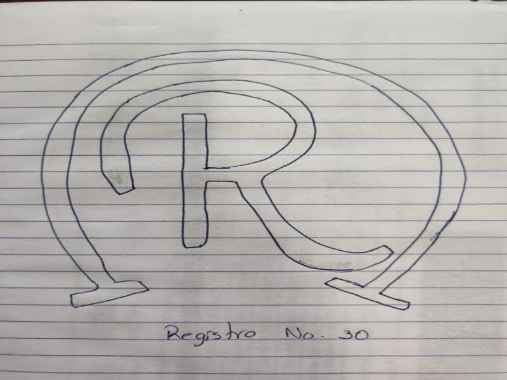 R
Registro No. 30